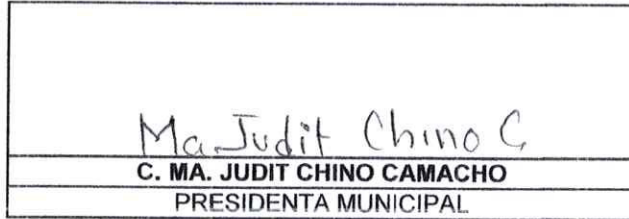 Ma Judit Chino C
C. MA. JUDIT CHINO CAMACHO
PRESIDENTA MUNICIPAL